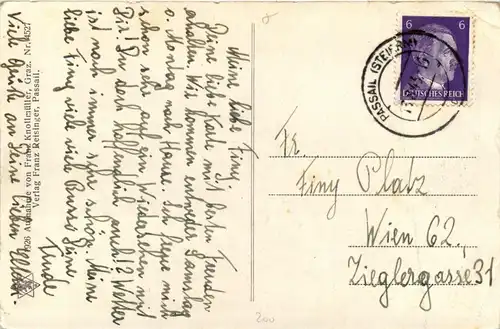 Meine liebe Finy,
Deine liebe Karte mit besten Freuden
erhalten. Wir kommen entweder Samstag
o. Montag nach Hause. Ich freue mich
schon sehr auf ein Wiedersehen mit
Dir! Du doch hoffentlich auch!? Wetter
ist noch immer sehr schön. Meine
liebe Finy viele viele Bussi Deine
Trude
Viele Grüße an Deine
1926 Aufnahme von Franz Knollmüller, Graz. Nr.
Verlag Franz Reisinger, Passail.
PASSAIL (STEIERMARK)
6 6
DEUTSCHES REICH
Fr.
Finy Platz
Wien 62,
Zieglergasse 31